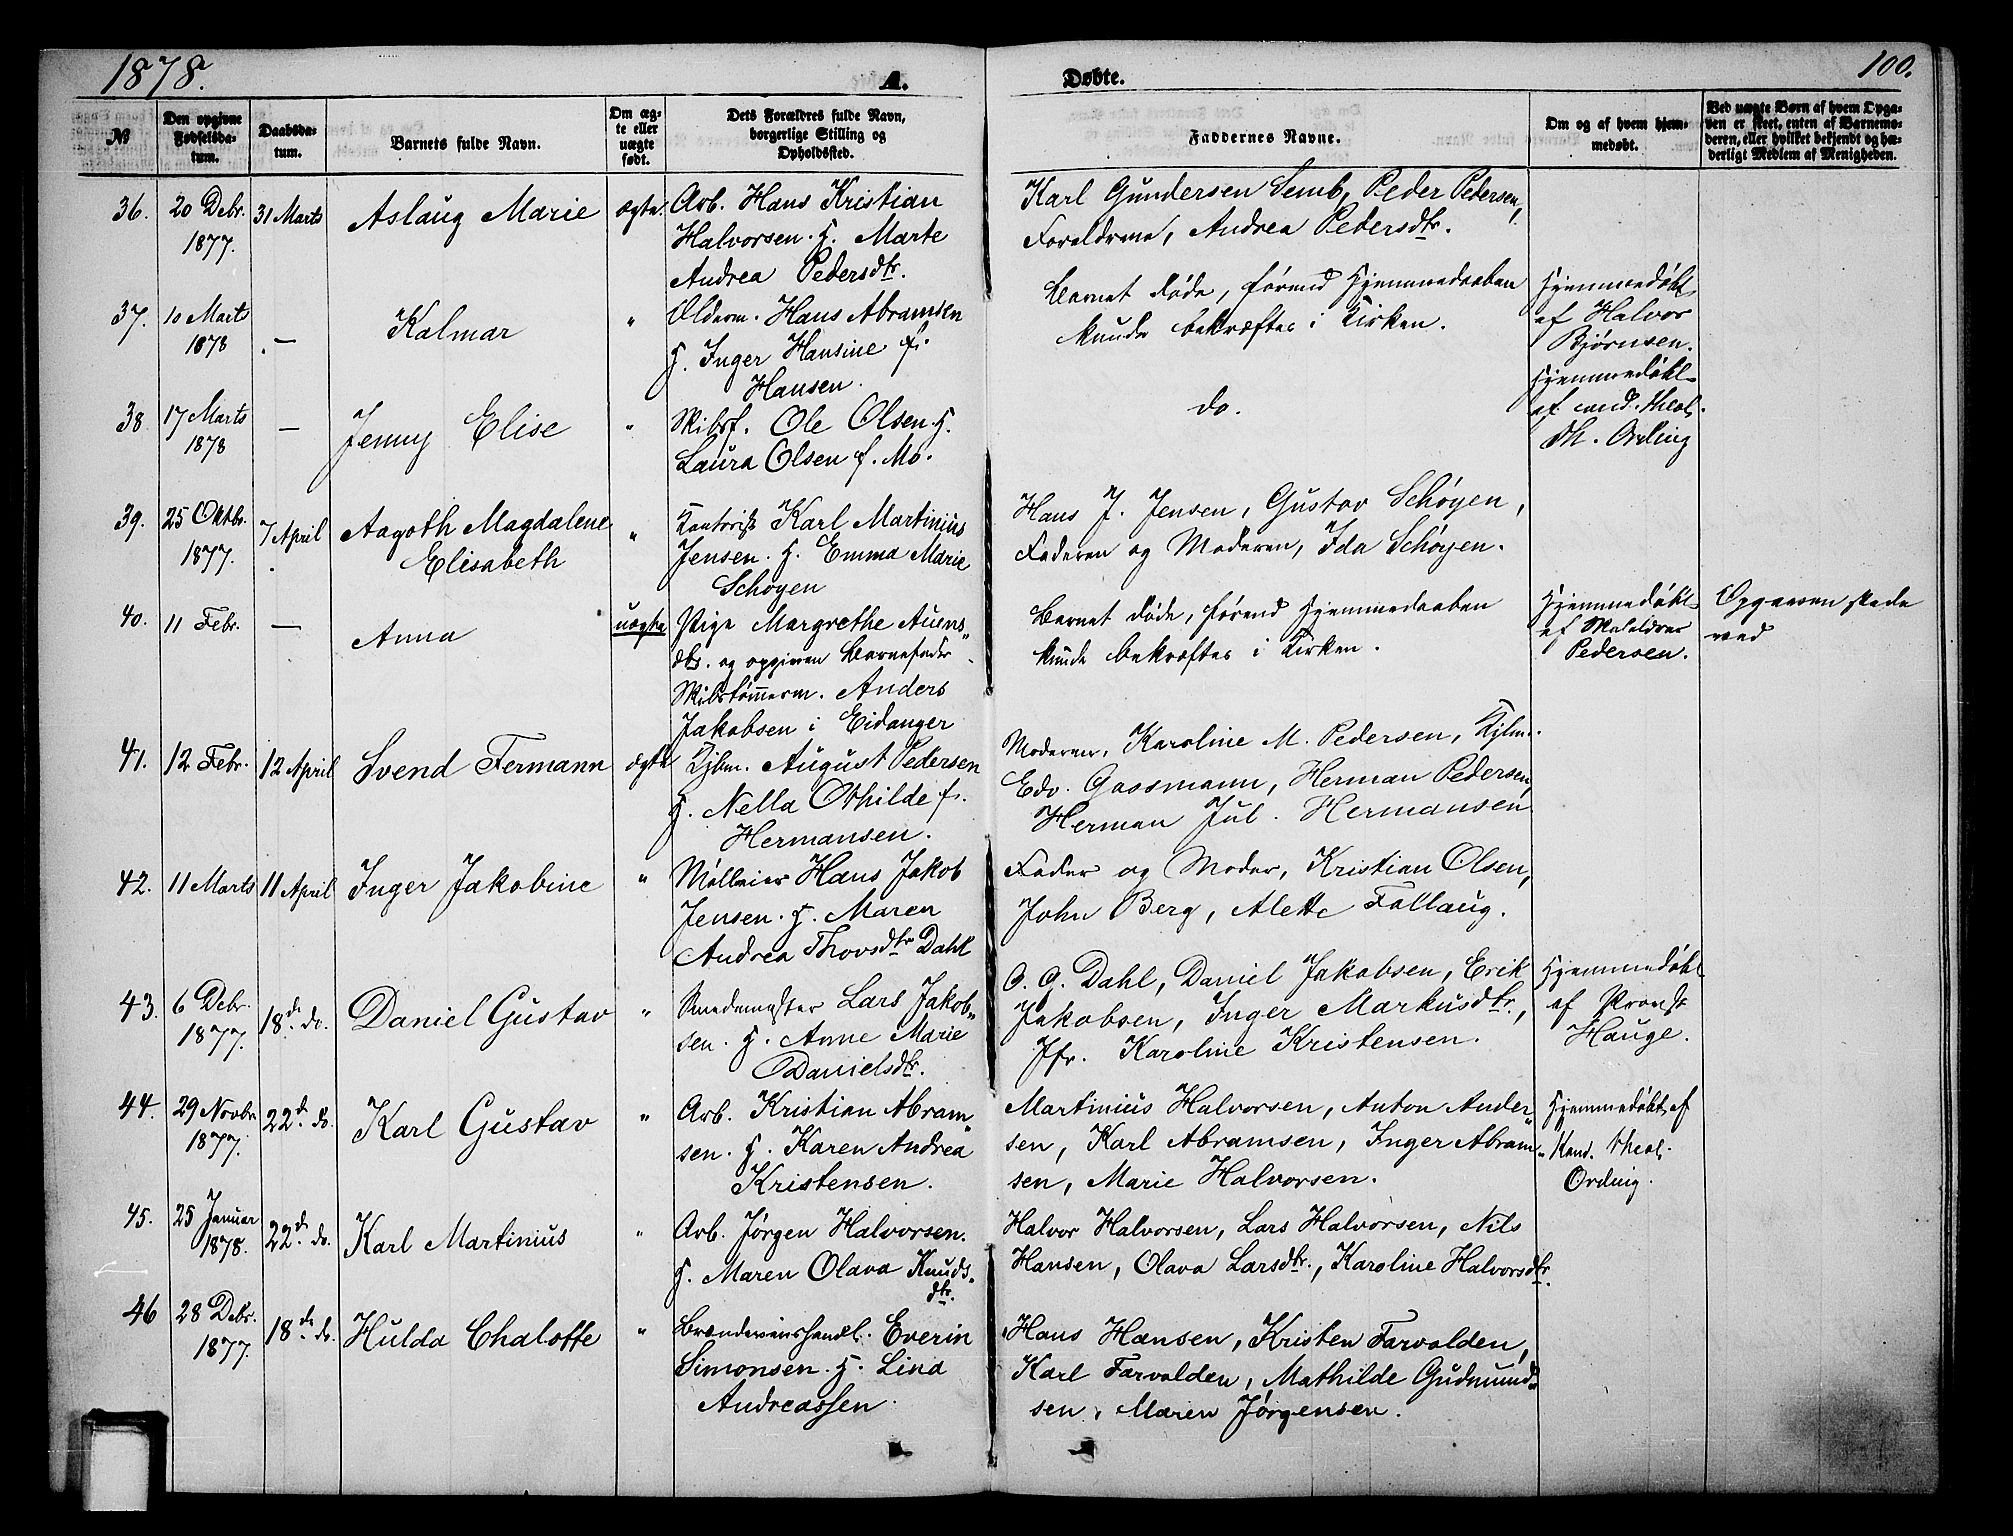 1878.
A.
Døbte.
100.
№
Den opgivne Fødselsdatum.
Daabsdatum.
Barnets fulde Navn.
Om ægte eller uægte født.
Dets Forældres fulde Navn, borgerlige Stilling og Opholdssted.
Faddernes Navne.
Om og af hvem hjemmedøbt.
Ved uægte Børn af hvem Opgaven er skeet, enten af Barnemoderen, eller hvilket bekjendt og hæderligt Medlem af Menigheden.
36.
20 Debr. 1877.
31 Marts
Aslaug Marie
ægte.
Arb. Hans Kristian
Halvorsen. H. Marte
Andrea Pedersdtr.
Karl Gundersen Semb, Peder Pedersen,
Foreldrene, Andrea Pedersdtr.
37.
10 Marts 1878
—
Kalmar
"
Olderm. Hans Abramsen
H. Inger Hansine f.
Hansen.
Barnet døde, førend Hjemmedaaben
kunde bekræftes i Kirken.
Hjemmedøbt
af Halvor
Bjørnsen.
38.
17 Marts 1878
—
Jenny Elise
"
Skibsf. Ole Olsen. H.
Laura Olsen f. Mo.
do.
Hjemmedøbt
af cand. theol.
Th. Ording
39.
25 Oktbr. 1877.
7 April
Aagoth Magdalene
Elisabeth
"
Kontorist Karl Martinius
Jensen. H. Emma Marie
Schøyen
Hans J. Jensen, Gustav Schøyen,
Faderen og Moderen, Ida Schøyen.
40.
11 Febr.
—
Anna
uægte
Pige Margrethe Auens"
dtr. og opgiven Barnefader
Skibstømmerm. Anders
Jakobsen i Eidanger
Barnet døde, førend Hjemmedaaben
kunde bekræftes i Kirken.
Hjemmedøbt
af
Pedersen.
Opgaven skede
ved
41.
12 Febr.
12 April
Svend Fermann
ægte
Kjbm. August Pedersen
H. Nella Othilde f.
Hermansen.
Moderen, Karoline M. Pedersen, Kjbm.
Edv. Gassmann, Herman Pedersen,
Herman Jul. Hermansen
42.
11 Marts
11 April
Inger Jakobine
"
Møller Hans Jakob
Jensen. H. Maren
Andrea Thovsdtr Dahl
Fader og Moder, Kristian Olsen,
John Berg, Alette Follaug.
43.
6 Debr. 1877.
18de do.
Daniel Gustav
"
Smedemester Lars Jakob"
sen. H. Anne Marie
Danielsdtr.
O. G. Dahl, Daniel Jakobsen, Erik
Jakobsen, Inger Markusdtr.,
Jfr. Karoline Kristensen.
Hjemmedøbt
af Provst
Hauge.
44.
29 Novbr 1877.
22de do.
Karl Gustav
"
Arb. Kristian Abram"
sen. H. Karen Andrea
Kristensen.
Martinius Halvorsen, Anton Ander"
sen, Karl Abramsen, Inger Abram"
sen, Marie Halvorsen.
Hjemmedøbt af
Kand. theol.
Ording.
45.
25 Januar 1878.
22de do.
Karl Martinius
"
Arb. Jørgen Halvorsen.
H. Maren Olava Knuds"
dtr.
Halvor Halvorsen, Lars Halvorsen, Nils
Hansen, Olava Larsdtr., Karoline Halvorsdtr.
46
28 Debr. 1877.
18de do.
Hulda Chalotte
"
Brændevinshandl. Everin
Simonsen. H. Lina
Andreassen.
Hans Hansen, Kristen Farvolden,
Karl Farvolden, Mathilde Gudmund"
sen, Maren Jørgensen.